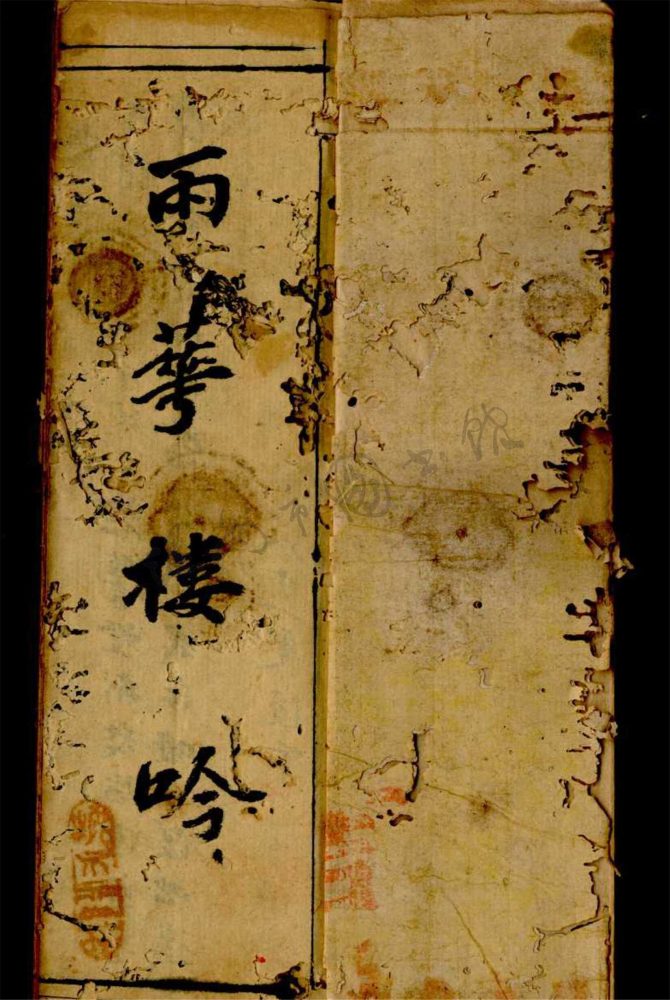 雨華樓吟